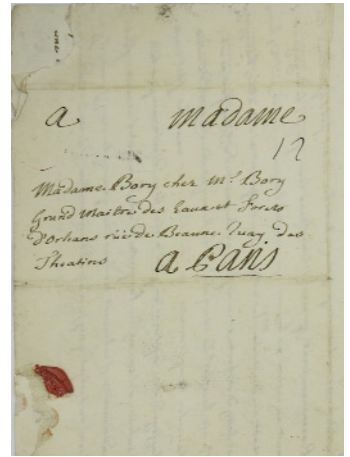 a Madame
12
Madame Bory chez Mr Bory
Grand Maitre des Eaux et Forets
D'Orleans rüe de Beaune Quay des
Theatins a Paris